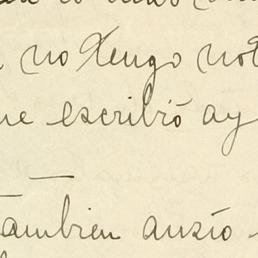 no tengo not
ue escribió ay
También ansío